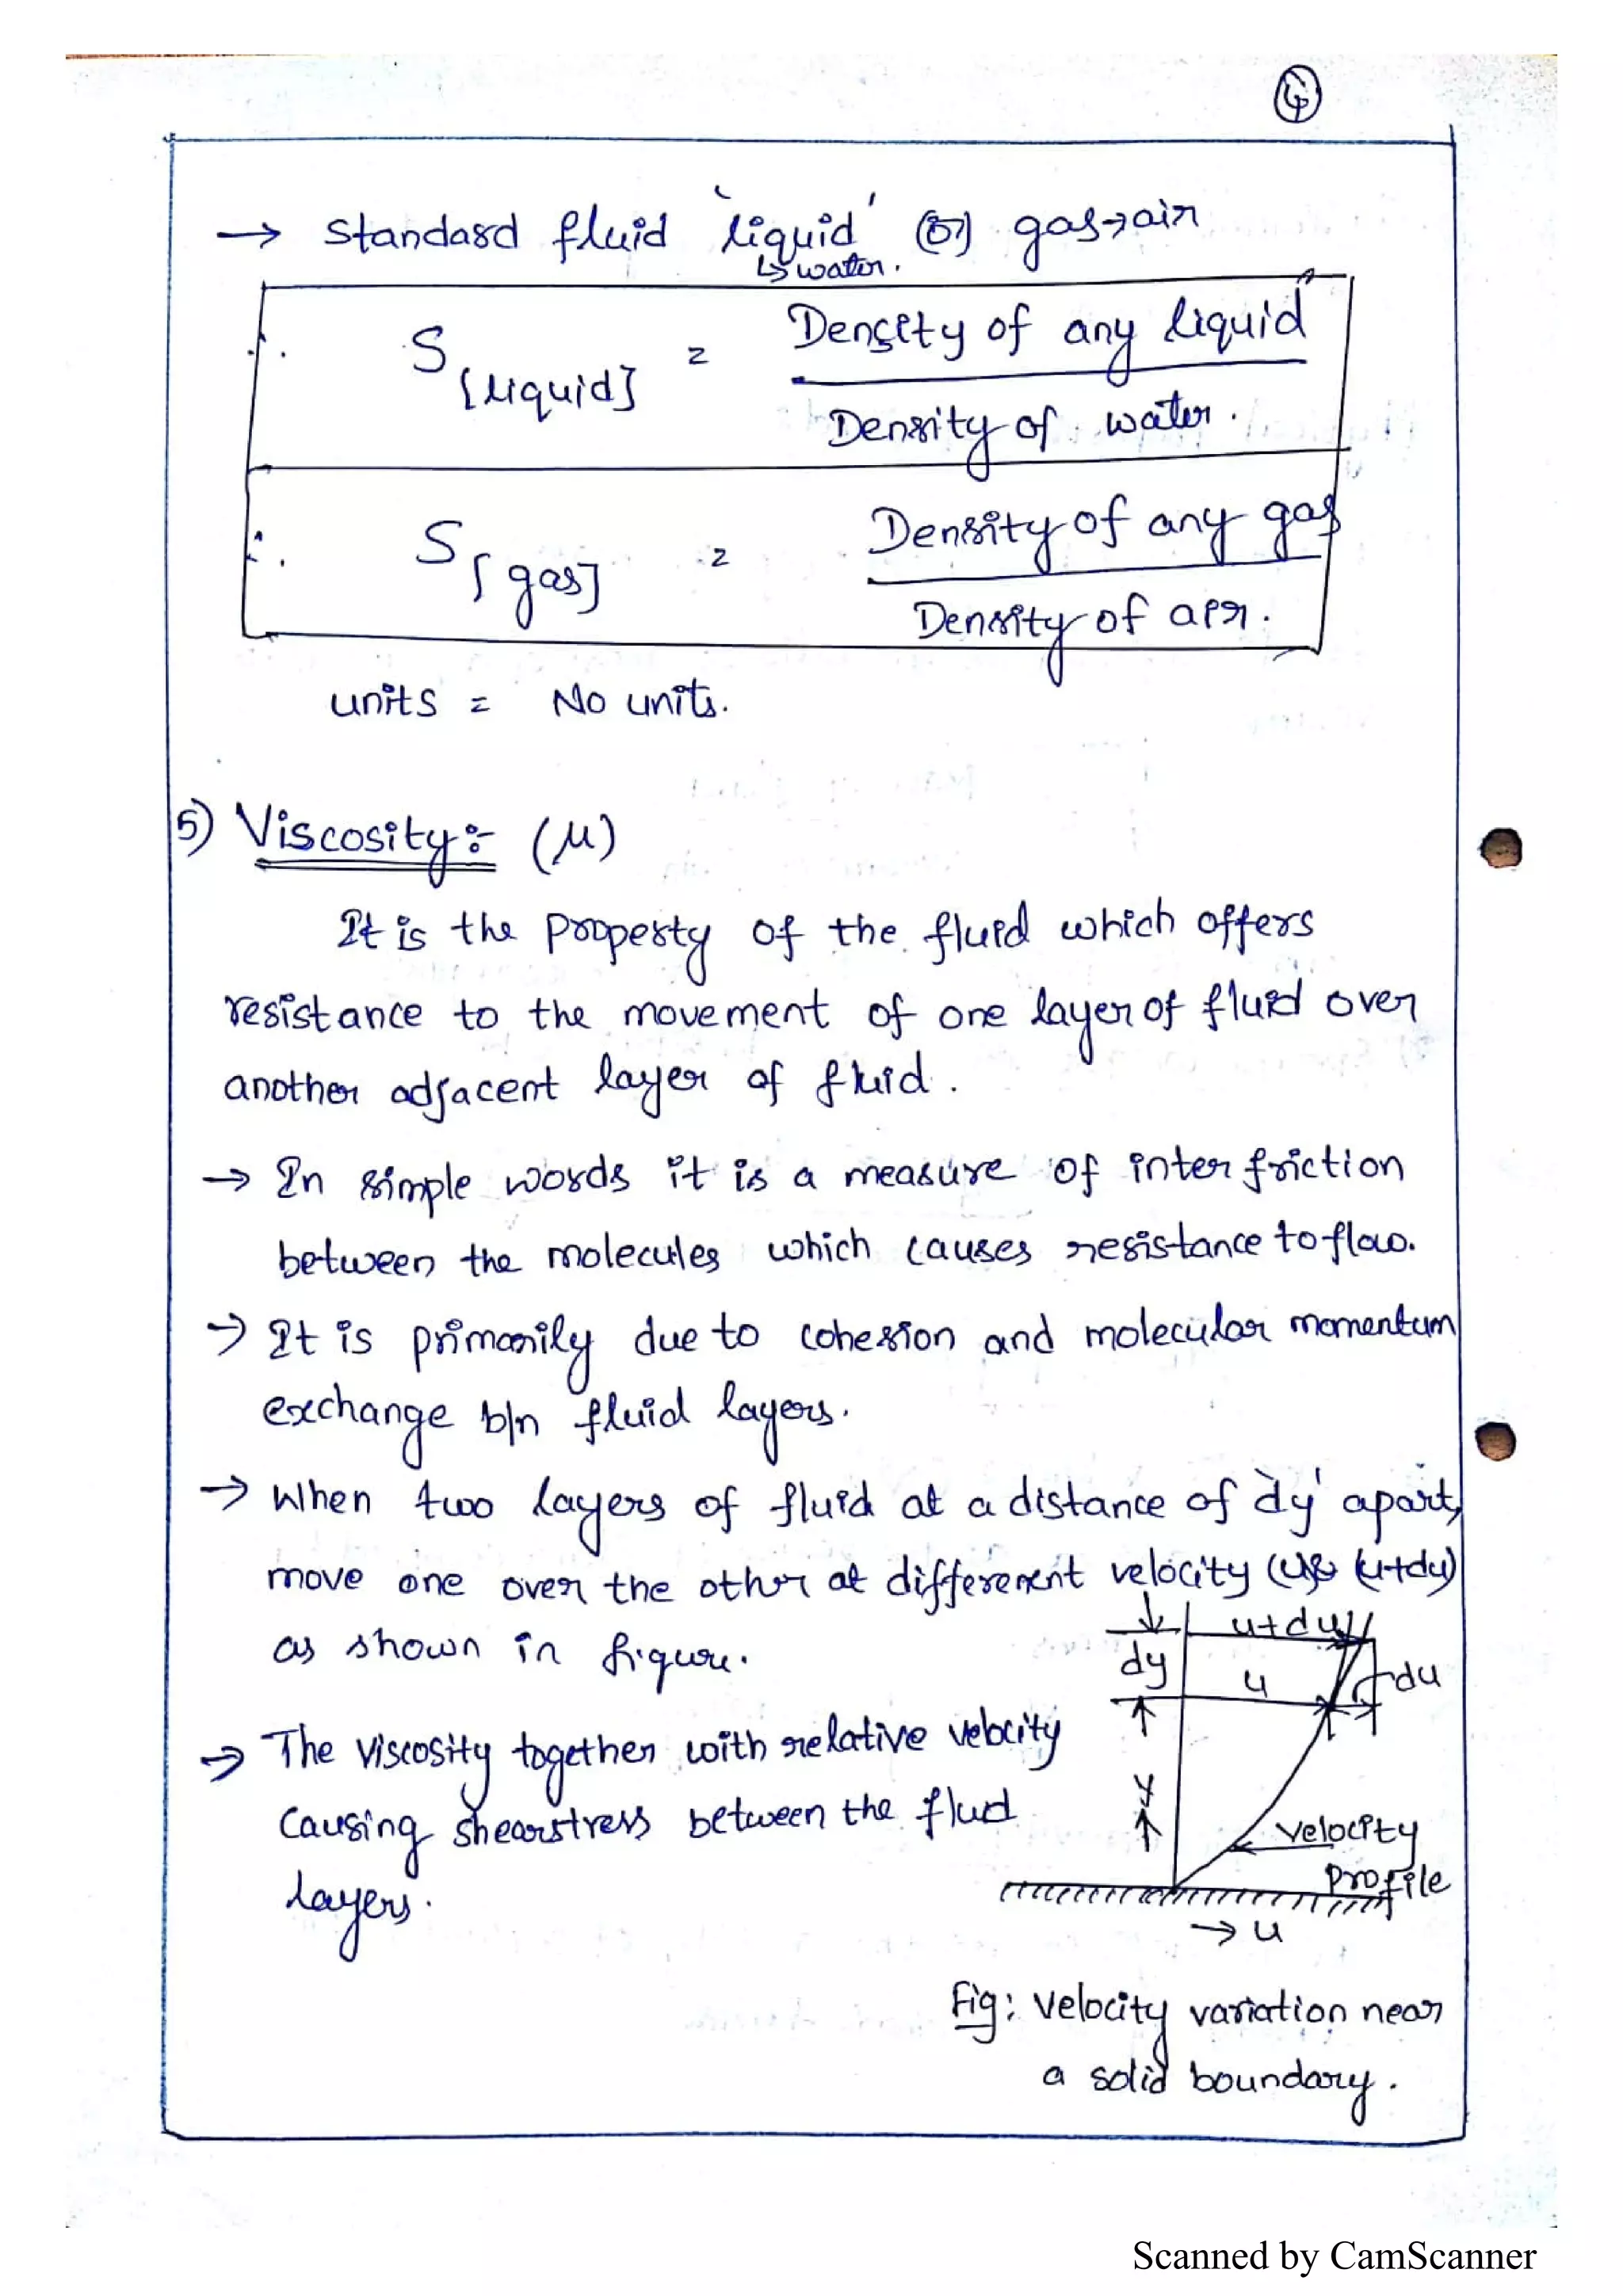 4
→ standard fluid 'liquid' (or) gas→air
↳ water.
∴ S[liquid] = Density of any liquid
Density of water.
∴ S[gas] = Density of any gas
Density of air.
units = No units.
5) Viscosity:- (μ)
It is the property of the fluid which offers
resistance to the movement of one layer of fluid over
another adjacent layer of fluid.
→ In simple words it is a measure of inter friction
between the molecules which causes resistance to flow.
→ It is primarily due to cohesion and molecular momentum
exchange b/n fluid layers.
→ When two layers of fluid at a distance of 'dy' apart,
move one over the other at differenent velocity (u & (u+du)
as shown in figure.
u+du
dy
u
du
→ The viscosity together with relative velocity
causing shearstress between the fluid
layers.
y
velocity
profile
→ u
Fig: Velocity variation near
a solid boundary.
Scanned by CamScanner